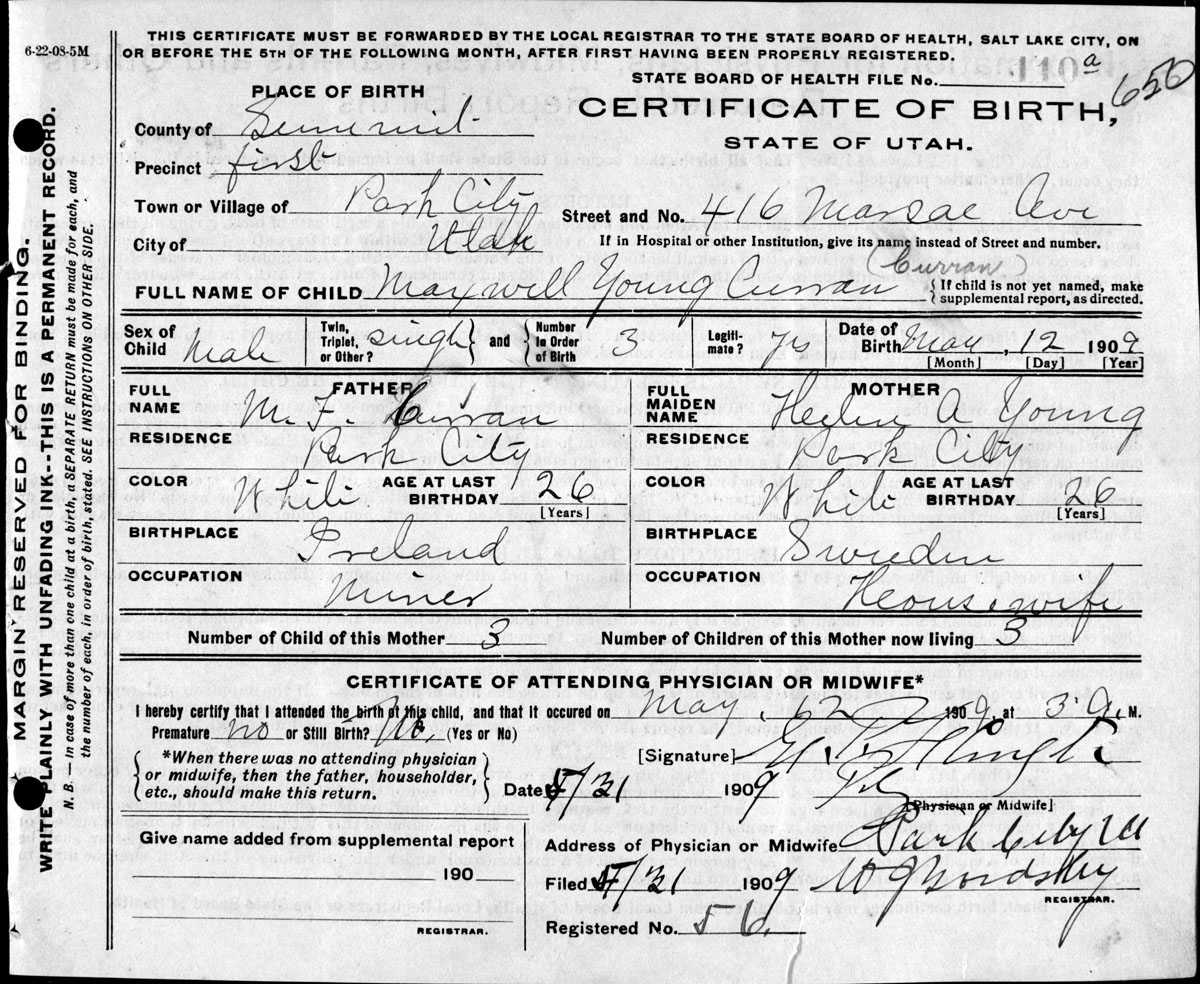 6-22-08-5M
THIS CERTIFICATE MUST BE FORWARDED BY THE LOCAL REGISTRAR TO THE STATE BOARD OF HEALTH, SALT LAKE CITY, ON
OR BEFORE THE 5TH OF THE FOLLOWING MONTH, AFTER FIRST HAVING BEEN PROPERLY REGISTERED.
STATE BOARD OF HEALTH FILE No. 110 a
650
PLACE OF BIRTH
CERTIFICATE OF BIRTH,
STATE OF UTAH.
County of Summit
Precinct first
Town or Village of Park City
Street and No. 416 Marsac Ave
City of Utah
If in Hospital or other Institution, give its name instead of Street and number.
Curran
FULL NAME OF CHILD Maxwell Young Curran
{ If child is not yet named, make
supplemental report, as directed.
Sex of Child Male
Twin, Triplet, or Other? single } and { Number in Order of Birth 3
Legiti-mate? yes
Date of Birth May, 12 1909
[Month] [Day] [Year]
FATHER
FULL NAME M. F. Curran
RESIDENCE Park City
COLOR White AGE AT LAST BIRTHDAY 26
[Years]
BIRTHPLACE Ireland
OCCUPATION Miner
MOTHER
FULL MAIDEN NAME Helen A Young
RESIDENCE Park City
COLOR White AGE AT LAST BIRTHDAY 26
[Years]
BIRTHPLACE Sweden
OCCUPATION Housewife
Number of Child of this Mother 3 Number of Children of this Mother now living 3
CERTIFICATE OF ATTENDING PHYSICIAN OR MIDWIFE*
I hereby certify that I attended the birth of this child, and that it occured on May 12 1909, at 3 a. M.
Premature no or Still Birth? No. (Yes or No)
{ *When there was no attending physician
or midwife, then the father, householder,
etc., should make this return. }
[Signature]
Date 5/21 1909
[Physician or Midwife]
Give name added from supplemental report
190
REGISTRAR.
Address of Physician or Midwife Park City Ut
Filed 5/21 1909
REGISTRAR.
Registered No. 56.
MARGIN RESERVED FOR BINDING.
WRITE PLAINLY WITH UNFADING INK--THIS IS A PERMANENT RECORD.
N. B. — In case of more than one child at a birth a SEPARATE RETURN must be made for each, and
the number of each, in order of birth, stated. SEE INSTRUCTIONS ON OTHER SIDE.